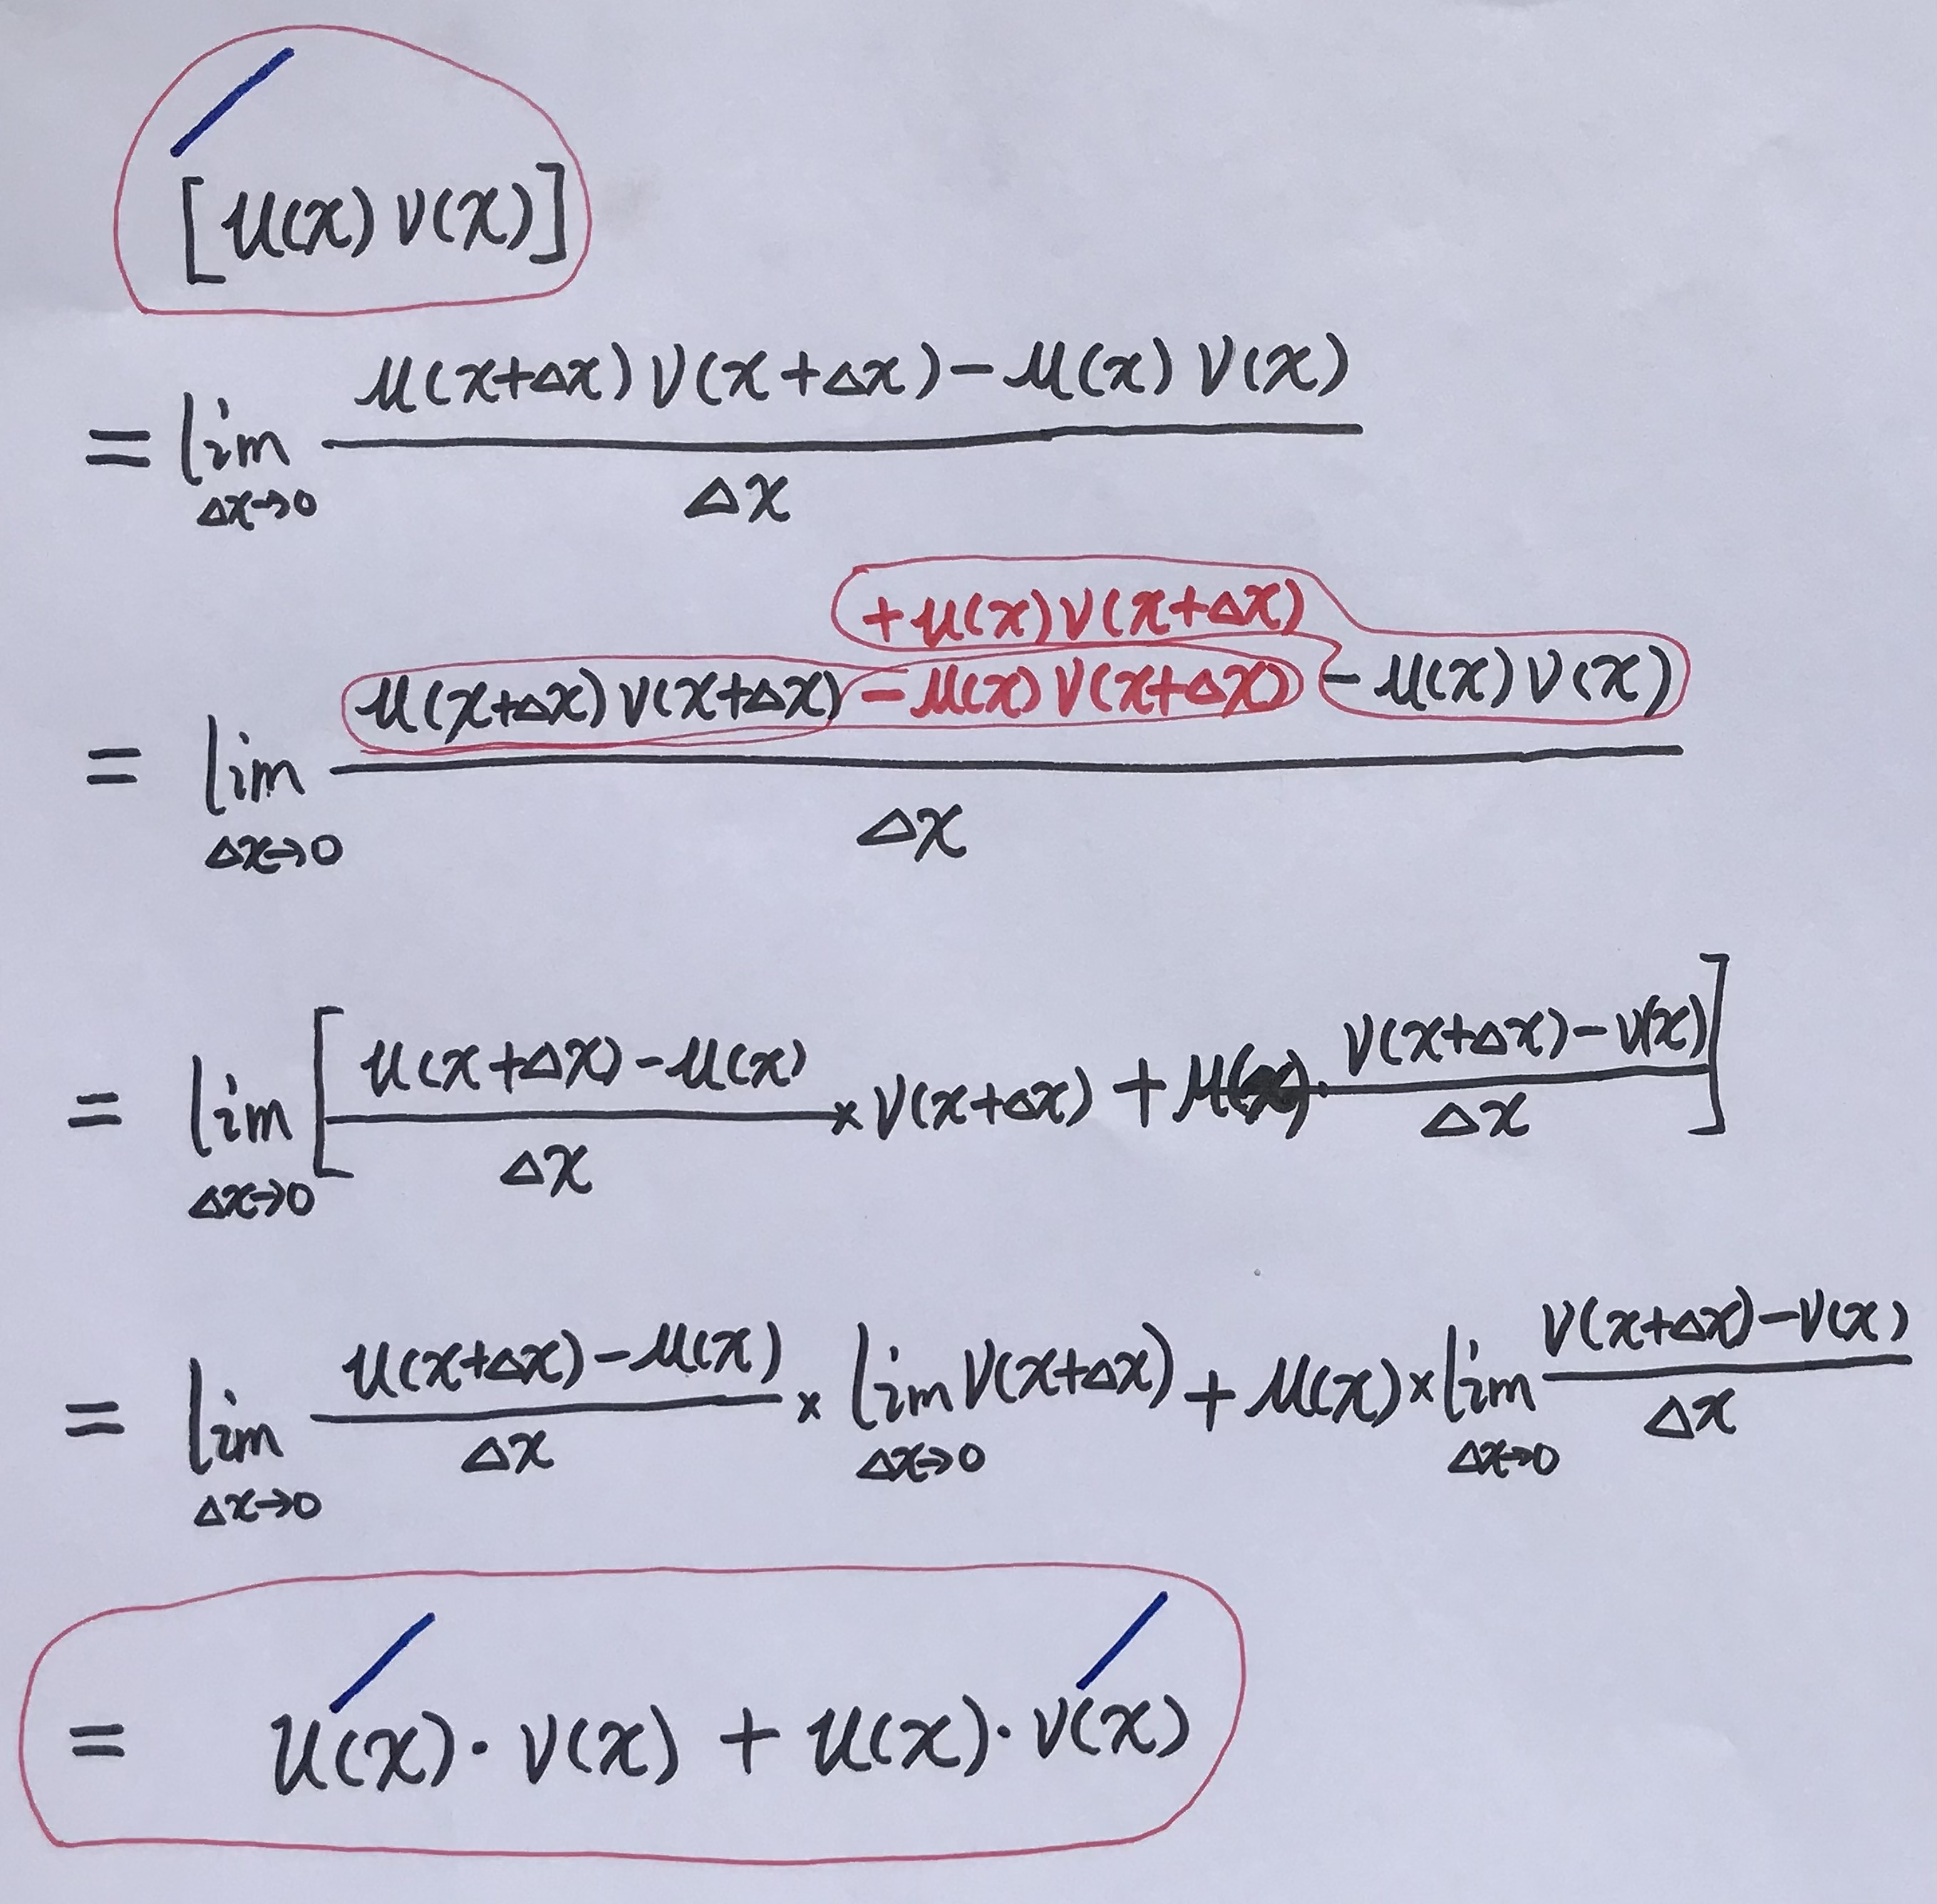 [u(x) v(x)]′
= lim_{Δx→0} \frac{u(x+Δx) v(x+Δx) − u(x) v(x)}{Δx}
= lim_{Δx→0} \frac{u(x+Δx) v(x+Δx) − u(x) v(x+Δx) + u(x) v(x+Δx) − u(x) v(x)}{Δx}
= lim_{Δx→0} [\frac{u(x+Δx) − u(x)}{Δx} × v(x+Δx) + u(x) · \frac{v(x+Δx) − v(x)}{Δx}]
= lim_{Δx→0} \frac{u(x+Δx) − u(x)}{Δx} × lim_{Δx→0} v(x+Δx) + u(x) × lim_{Δx→0} \frac{v(x+Δx) − v(x)}{Δx}
= u′(x) · v(x) + u(x) · v′(x)